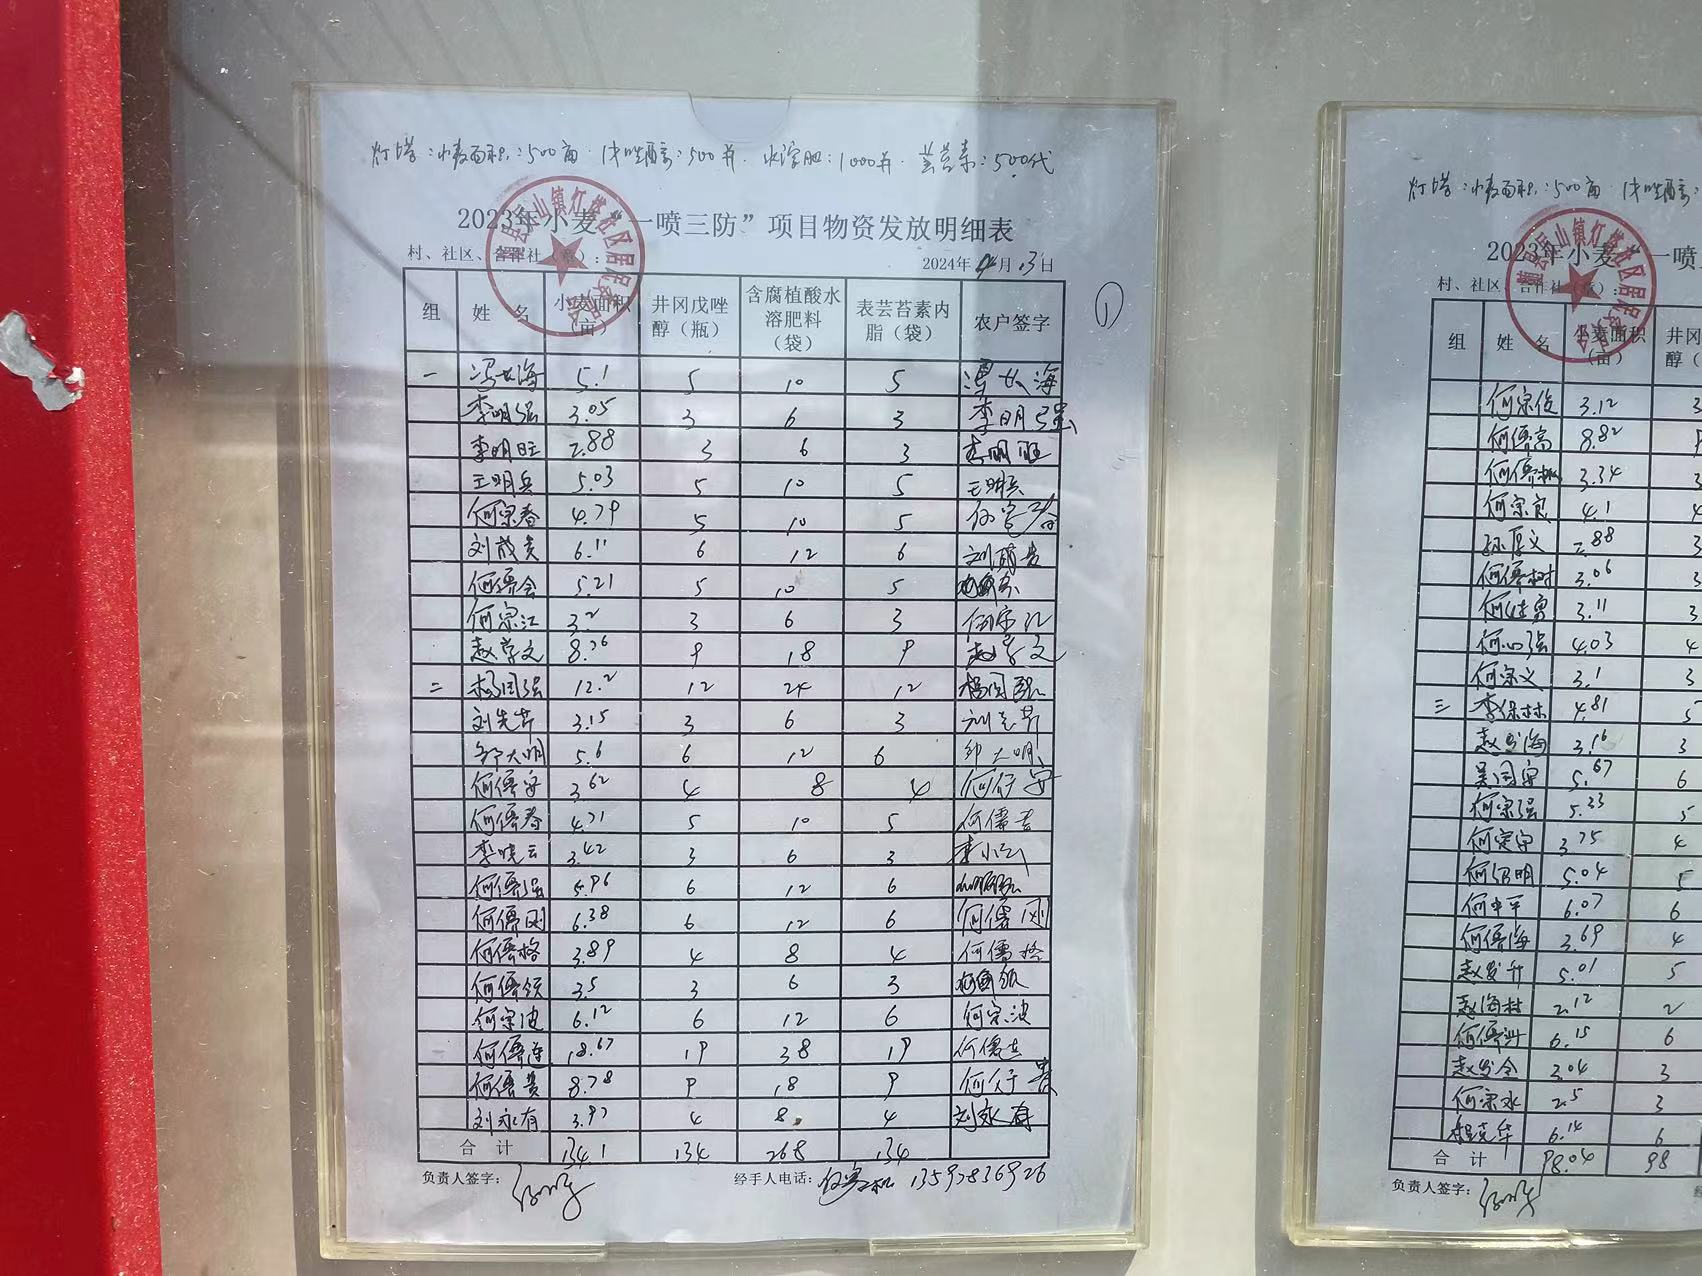 灯塔：小麦面积：500亩·戊唑醇：500并·水溶肥：1000并·芸苔素：500代
2023年小麦“一喷三防”项目物资发放明细表
村、社区、合作社（章）： 2024年4月13日
组 姓名 小麦面积（亩） 井冈戊唑醇（瓶） 含腐植酸水溶肥料（袋） 表芸苔素内脂（袋） 农户签字
①
一 冯女海 5.1 5 10 5
李明强 3.05 3 6 3 李明强
李明旺 2.88 3 6 3 李明旺
王明兵 5.03 5 10 5 王明兵
何宗春 4.79 5 10 5
刘成贵 6.11 6 12 6
何儒会 5.21 5 10 5
何宗江 3.2 3 6 3 何宗江
赵学文 8.76 9 18 9 赵学文
二 杨国强 12.2 12 24 12 杨国强
刘先芹 3.15 3 6 3 刘先芹
邹大明 5.6 6 12 6 邹大明
何儒安 3.62 4 8 4
何儒春 4.71 5 10 5 何儒春
李晓云 3.42 3 6 3 李小云
何儒强 5.96 6 12 6
何儒刚 6.38 6 12 6 何儒刚
何儒格 3.89 4 8 4 何儒格
何儒领 3.5 3 6 3
何宗波 6.12 6 12 6 何宗波
何儒连 18.67 19 38 19
何儒贵 8.78 9 18 9
刘永有 3.97 4 8 4 刘永有
合计 134.1 134 268 134
负责人签字： 经手人电话： 13597836926
灯塔：小麦面积：500亩·戊唑醇：
2023年小麦“一喷
村、社区、合作社（章）：
组 姓名 小麦面积（亩） 井冈 醇（
何宗俊 3.12 3
何儒高 8.82
何儒 3.34 3
何宗良 4.1 4
孙厚义 2.88 3
何儒树 3.06 3
何 勇 3.11 3
何 强 4.03 4
何宗义 3.1 3
三 李保林 4.81 5
赵发海 3.16 3
吴国安 5.67 6
何宗强 5.33 5
何宗安 3.75 4
何 明 5.04 5
何中平 6.07 6
何儒海 3.69 4
赵发升 5.01 5
赵海村 2.12 2
何儒 6.15 6
赵发全 3.04 3
何宗水 2.5 3
程克华 6.14 6
合计 98.04 98
负责人签字：